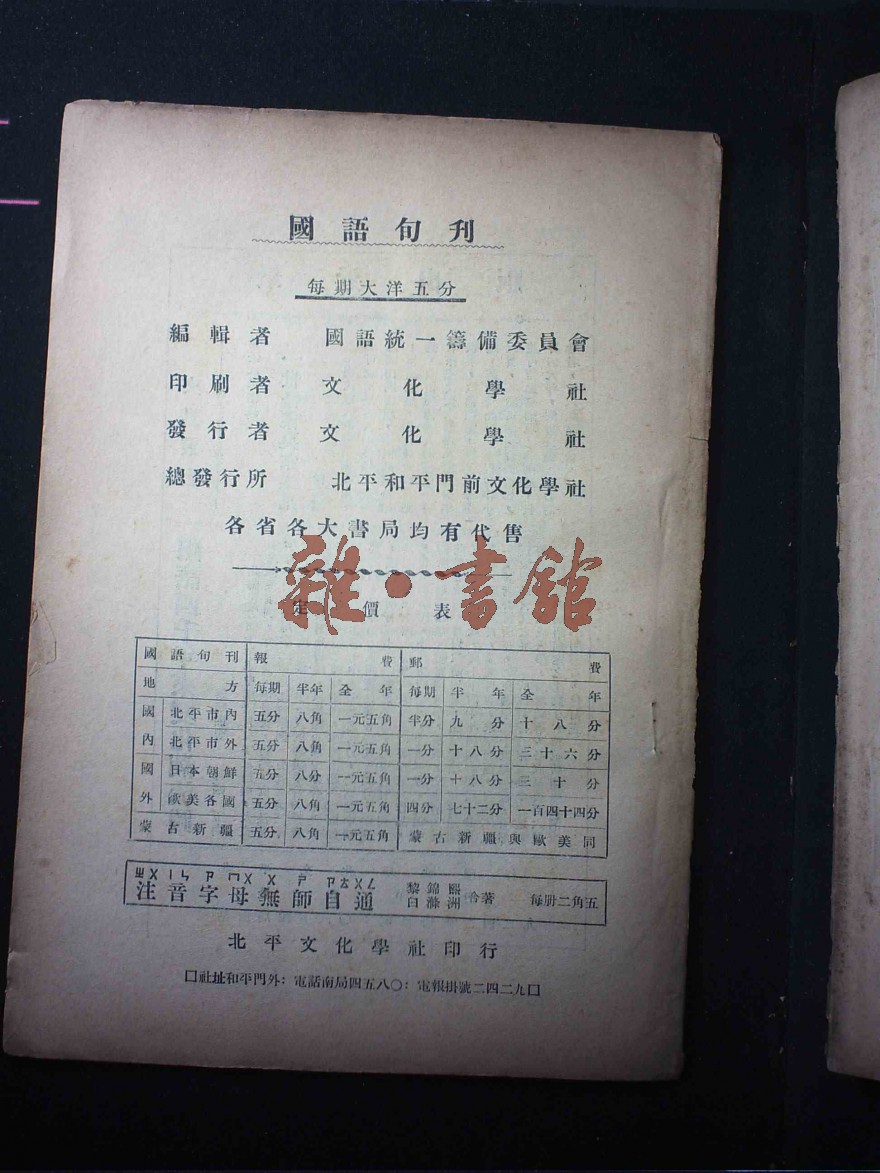 國語旬刊
每期大洋五分
編輯者 國語統一籌備委員會
印刷者 文化學社
發行者 文化學社
總發行所 北平和平門前文化學社
各省各大書局均有代售
雜·書館
定價表
國語旬刊 報費 郵費
地方 每期 半年 全年 每期 半年 全年
國內 北平市內 五分 八角 一元五角 半分 九分 十八分
北平市外 五分 八角 一元五角 一分 十八分 三十六分
國外 日本朝鮮 五分 八分 一元五角 一分 十八分 三十分
歐美各國 五分 八角 一元五角 四分 七十二分 一百四十四分
蒙古新疆 五分 八角 一元五角 蒙古新疆與歐美同
ㄓㄨㄧㄣ ㄗ ㄇㄨ ㄨ ㄕ ㄗㄊㄨㄥ
注音字母無師自通 黎錦熙 白滌洲 合著 每册二角五
北平文化學社印行
□社址和平門外：電話南局四五八〇：電報掛號二四二九□